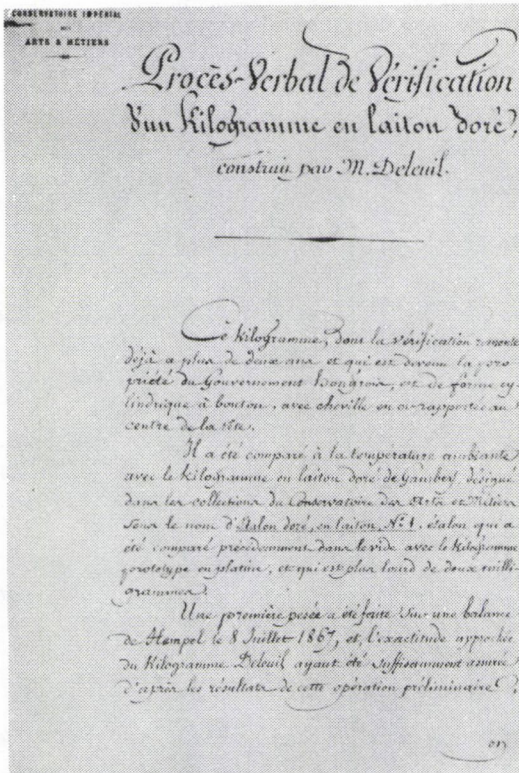 CONSERVATOIRE IMPÉRIAL
DES
ARTS & MÉTIERS
Procès-Verbal de Vérification
d'un Kilogramme en laiton doré,
construit par M. Deleuil.
Ce Kilogramme, dont la vérification remonte
déjà à plus de deux ans et qui est devenu la pro
priété du Gouvernement hongrois, est de forme cy
lindrique à bouton, avec cheville en or rapportée au
centre de la tête.
Il a été comparé à la température ambiante
avec le Kilogramme en laiton doré de Gambey, désigné
dans les collections du Conservatoire des Arts et Métiers
sous le nom d'Étalon doré, en laiton, N° 1, étalon qui a
été comparé précédemment dans le vide avec le Kilogramme
prototype en platine, et qui est plus lourd de deux milli-
grammes.
Une première pesée a été faite sur une balance
de Hempel le 8 Juillet 1867, et, l'exactitude approchée
du Kilogramme Deleuil ayant été suffisamment assurée
d'après les résultats de cette opération préliminaire,
on